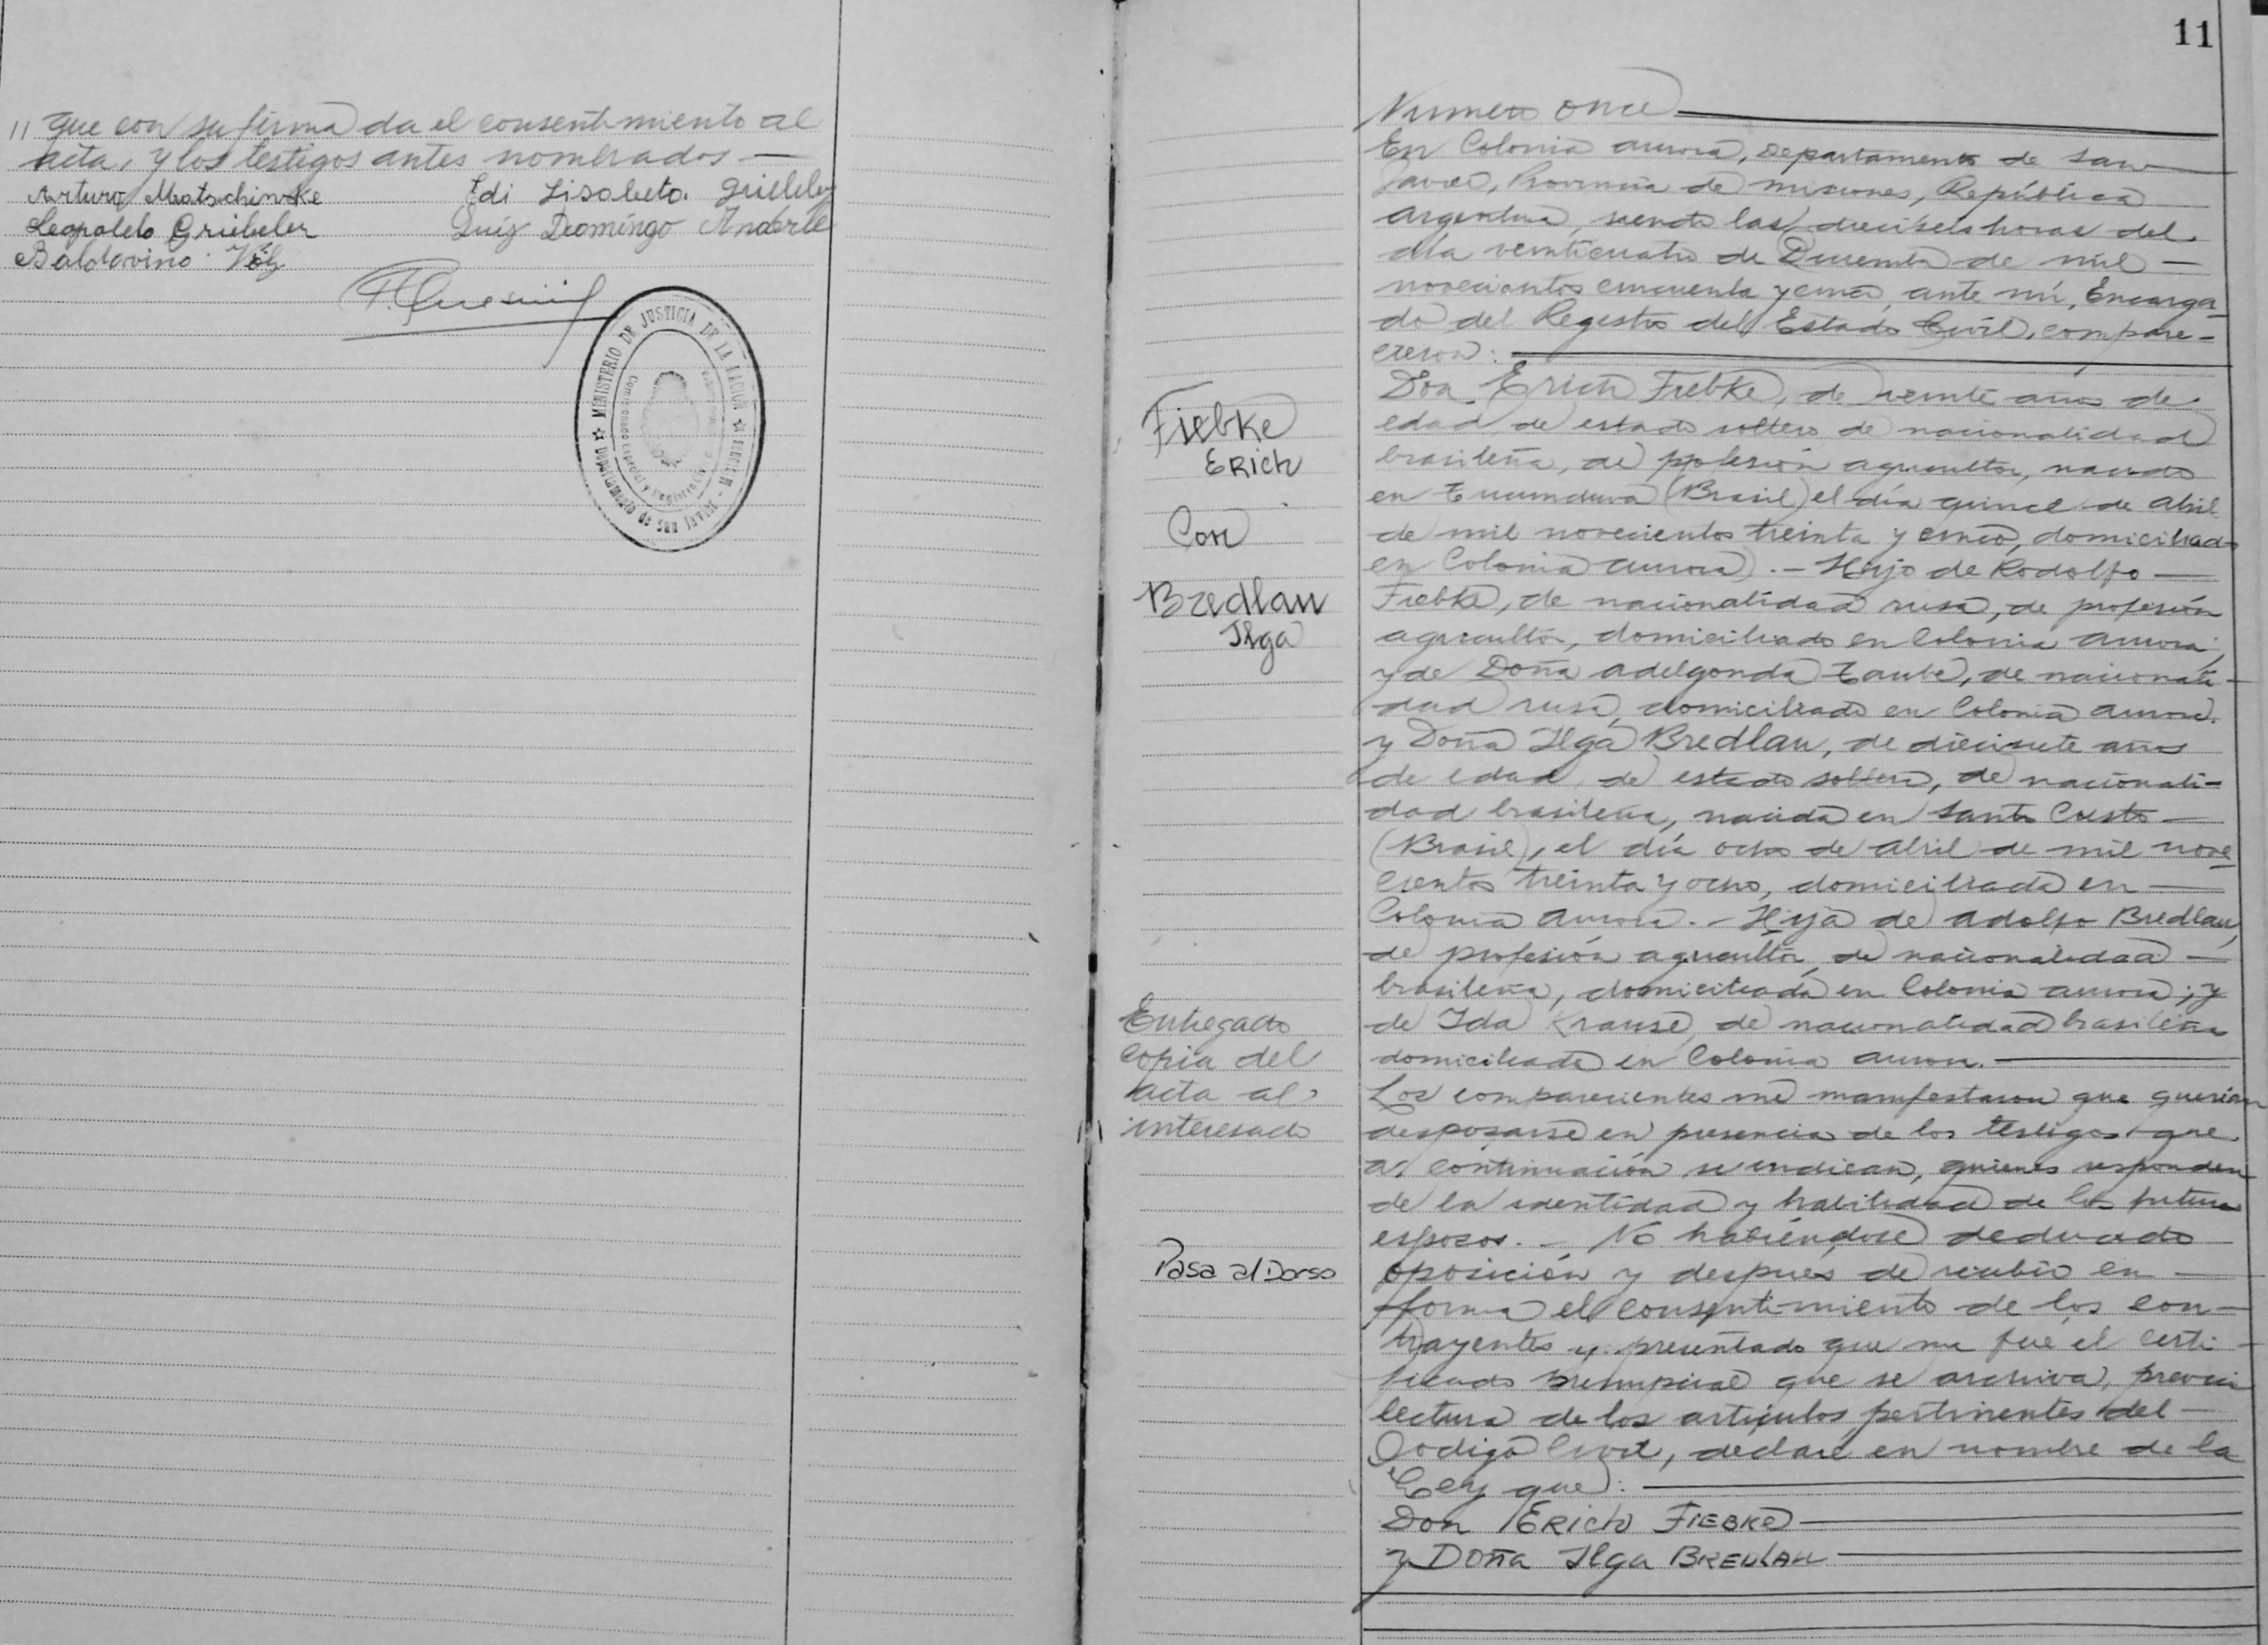 11 que con su firma da el consentimiento al
acta, y los testigos antes nombrados —
Arturo Matschinske
Edi Lisabeta. Griebeler
Leopoldo Griebeler
Luiz Domingo Anderle
Baldovino Völz
★ MINISTERIO DE JUSTICIA DE LA NACION ★
Departamento de San JAVIER -
11
Numero once
En Colonia aurora, Departamento de San
Javier, Provincia de misiones, República
argentina, siendo las dieciseis horas del
dia veinticuatro de Diciembre de mil —
novecientos cincuenta y cinco, ante mi, Encarga-
do del Registro del Estado Civil, compare-
cieron:
Don Erich Fiebke, de veinte años de
edad, de estado soltero de nacionalidad
Fiebke
Erich
brasileña, de profesión agricultor, nacido
en Tucunduva (Brasil) el día quince de abril
Con
de mil novecientos treinta y cinco, domiciliado
en Colonia aurora). - Hijo de Rodolfo —
Bredlau
Ilga
Fiebke, de nacionalidad rusa, de profesión
agricultor, domiciliado en Colonia aurora,
y de Doña adelgonda Taube, de nacionali-
dad rusa, domiciliado en Colonia aurora.
y Doña Ilga Bredlau, de diecisiete años
de edad, de estado soltera, de nacionali-
dad brasileña, nacida en Santo Cristo —
(Brasil), el día ocho de abril de mil nove
cientos treinta y ocho, domiciliada en —
Colonia aurora. - Hija de adolfo Bredlau,
de profesión agricultor, de nacionalidad —
brasileña, domiciliada en Colonia aurora; y
Entregado
copia del
acta al
interesado
de Ida Krause, de nacionalidad brasileña
domiciliada en Colonia aurora.
Los comparecientes me manifestaron que querían
desposarse en presencia de los testigos que
a continuación se indican, quienes responden
de la identidad y habilidad de los futuros
esposos. - No habiéndose deducido
Pasa al Dorso
oposición y despues de recibir en —
forma el consentimiento de los con-
trayentes y presentado que me fue el certi-
ficado prenupcial que se archiva, previa
lectura de los artículos pertinentes del —
Codigo Civil, declaré en nombre de la
Ley que:
Don ERich FIEBKE
y Doña Ilga BREDLAU